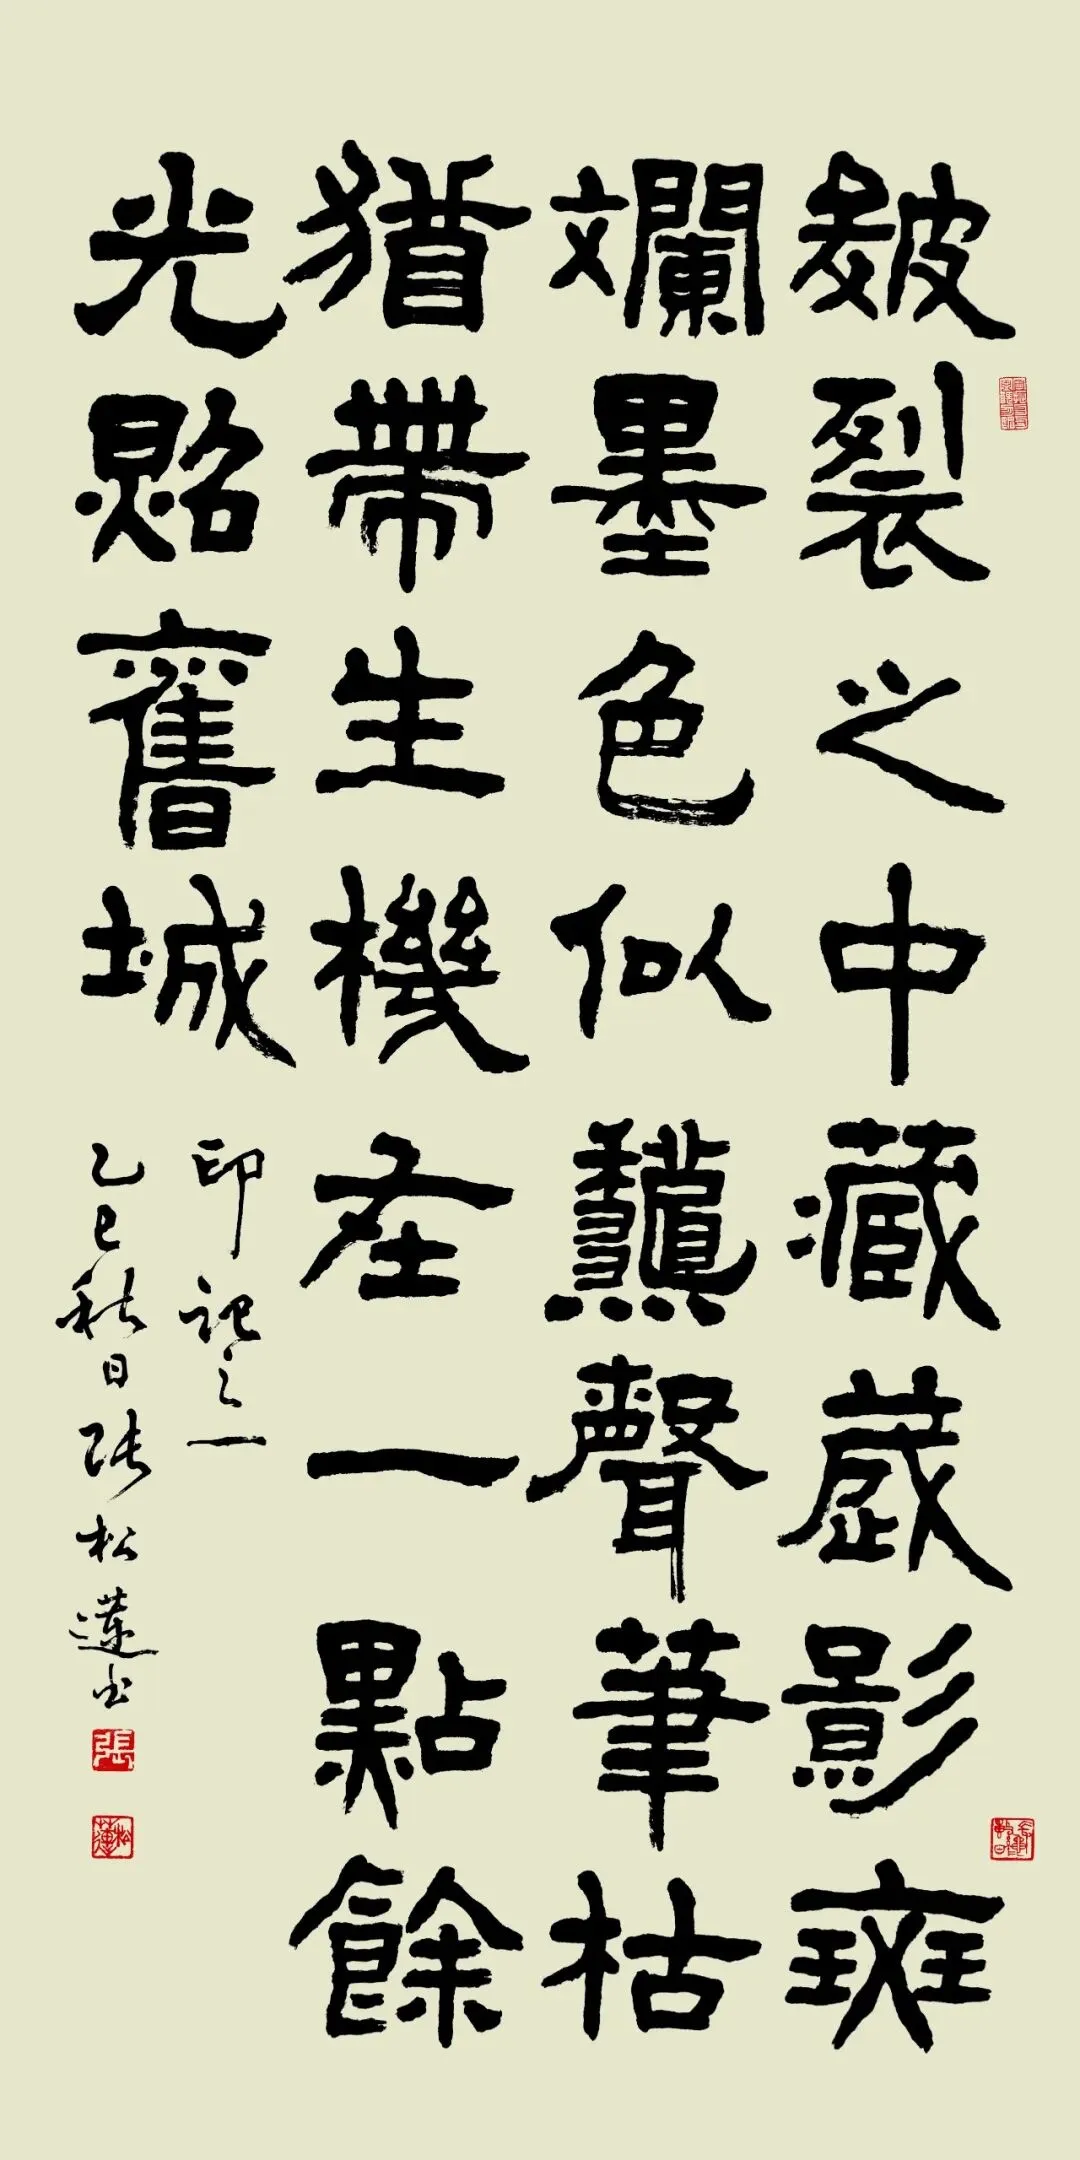 皴裂之中藏歲影斑
斕墨色似秋聲筆枯
猶帶生機在一點餘
光照舊城
印記之一
乙巳秋日張松蓮书
張
松蓮